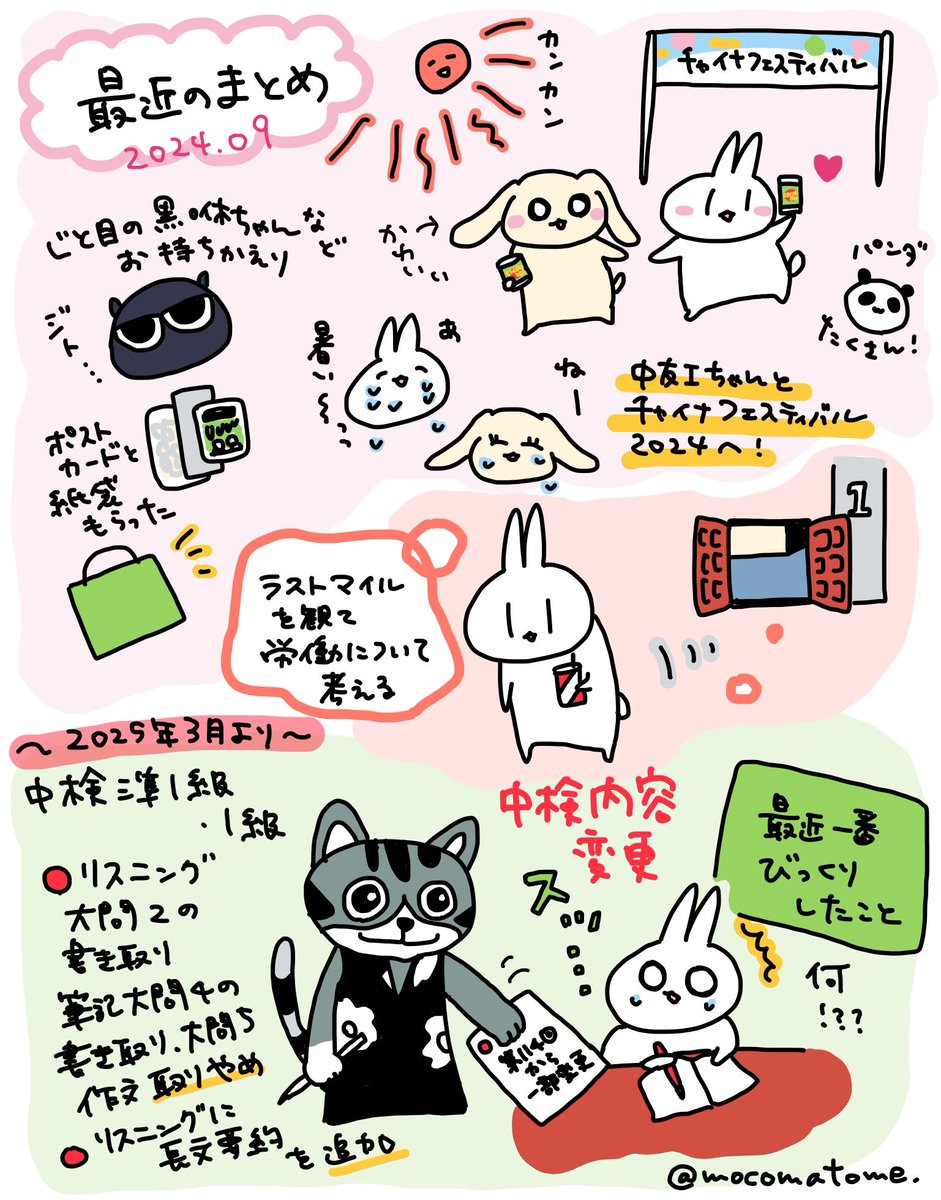 最近のまとめ
2024.09
カンカン
チャイナフェスティバル
じと目の黒咻ちゃんなど
お持ちかえり
ジト…
かわいい→
パンダ
たくさん!
あ
暑い〜っっ
ねー
中友エちゃんと
チャイナフェスティバル
2024へ!
ポスト
カードと
紙袋
もらった
ラストマイル
を観て
労働について
考える
1
〜2025年3月より〜
中検準1級
・1級
リスニング
大問2の
書き取り
筆記大問4の
書き取り、大問5
作文取りやめ
リスニングに
長文要約
を追加
中検内容
変更
ス…
第114回
から
一部変更
最近一番
びっくり
したこと
何
!???
@mocomatome.